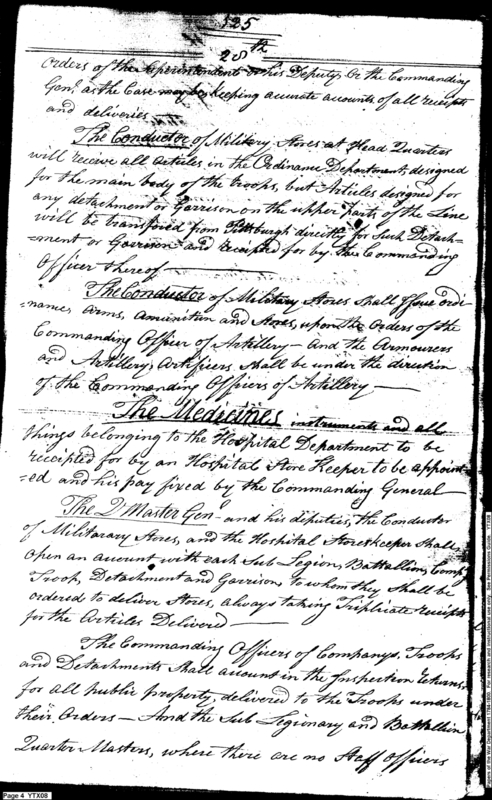 525
28th
Orders of the Superintendent or his Deputy, Or the Commanding
Genl. as the Case may be, keeping accurate accounts of all receipts
and deliveries
The Conductor of Military Stores at Head Quarters
will receive all Articles in the Ordinance Department, designed
for the main body of the troops, but Articles designed for
any detachment or Garrison on the upper parts of the Line
will be transfired from Pittsburgh directly for Such Detach-
-ment or Garrison and receipted for by the Commanding
Officer thereof
The Conductor of Military Stores Shall Issue ordi-
-nance, Arms, Amunition and Stores, upon the Orders of the
Commanding Officer of Artillery — And the Armourers
and Artillery Artificers, Shall be under the direction
of the Commanding Officers of Artillery —
The Medicines instruments and all
things belonging to the Hospital Department to be
receipted for by an Hospital Store Keeper to be appoint-
-ed and his pay fixed by the Commanding General
The Qr Master Genl. and his deputies, the Conductor
of Militarary Stores, and the Hospital Storeskeeper Shall
open an account with each Sub Legion, Battallion, Comp.
Troop, Detachment and Garrison to whom they Shall be
ordered to deliver Stores, always taking Triplicate receipts
for the Articles Delivered —
The Commanding Officers of Companys, Troops
and Detachments Shall account in the Inspection Returns,
for all public property, delivered to the Troops under
their Orders — And the Sub Legionary and Battallion
Quarter Masters, where there are no Staff Officers
Page 4 YTX08